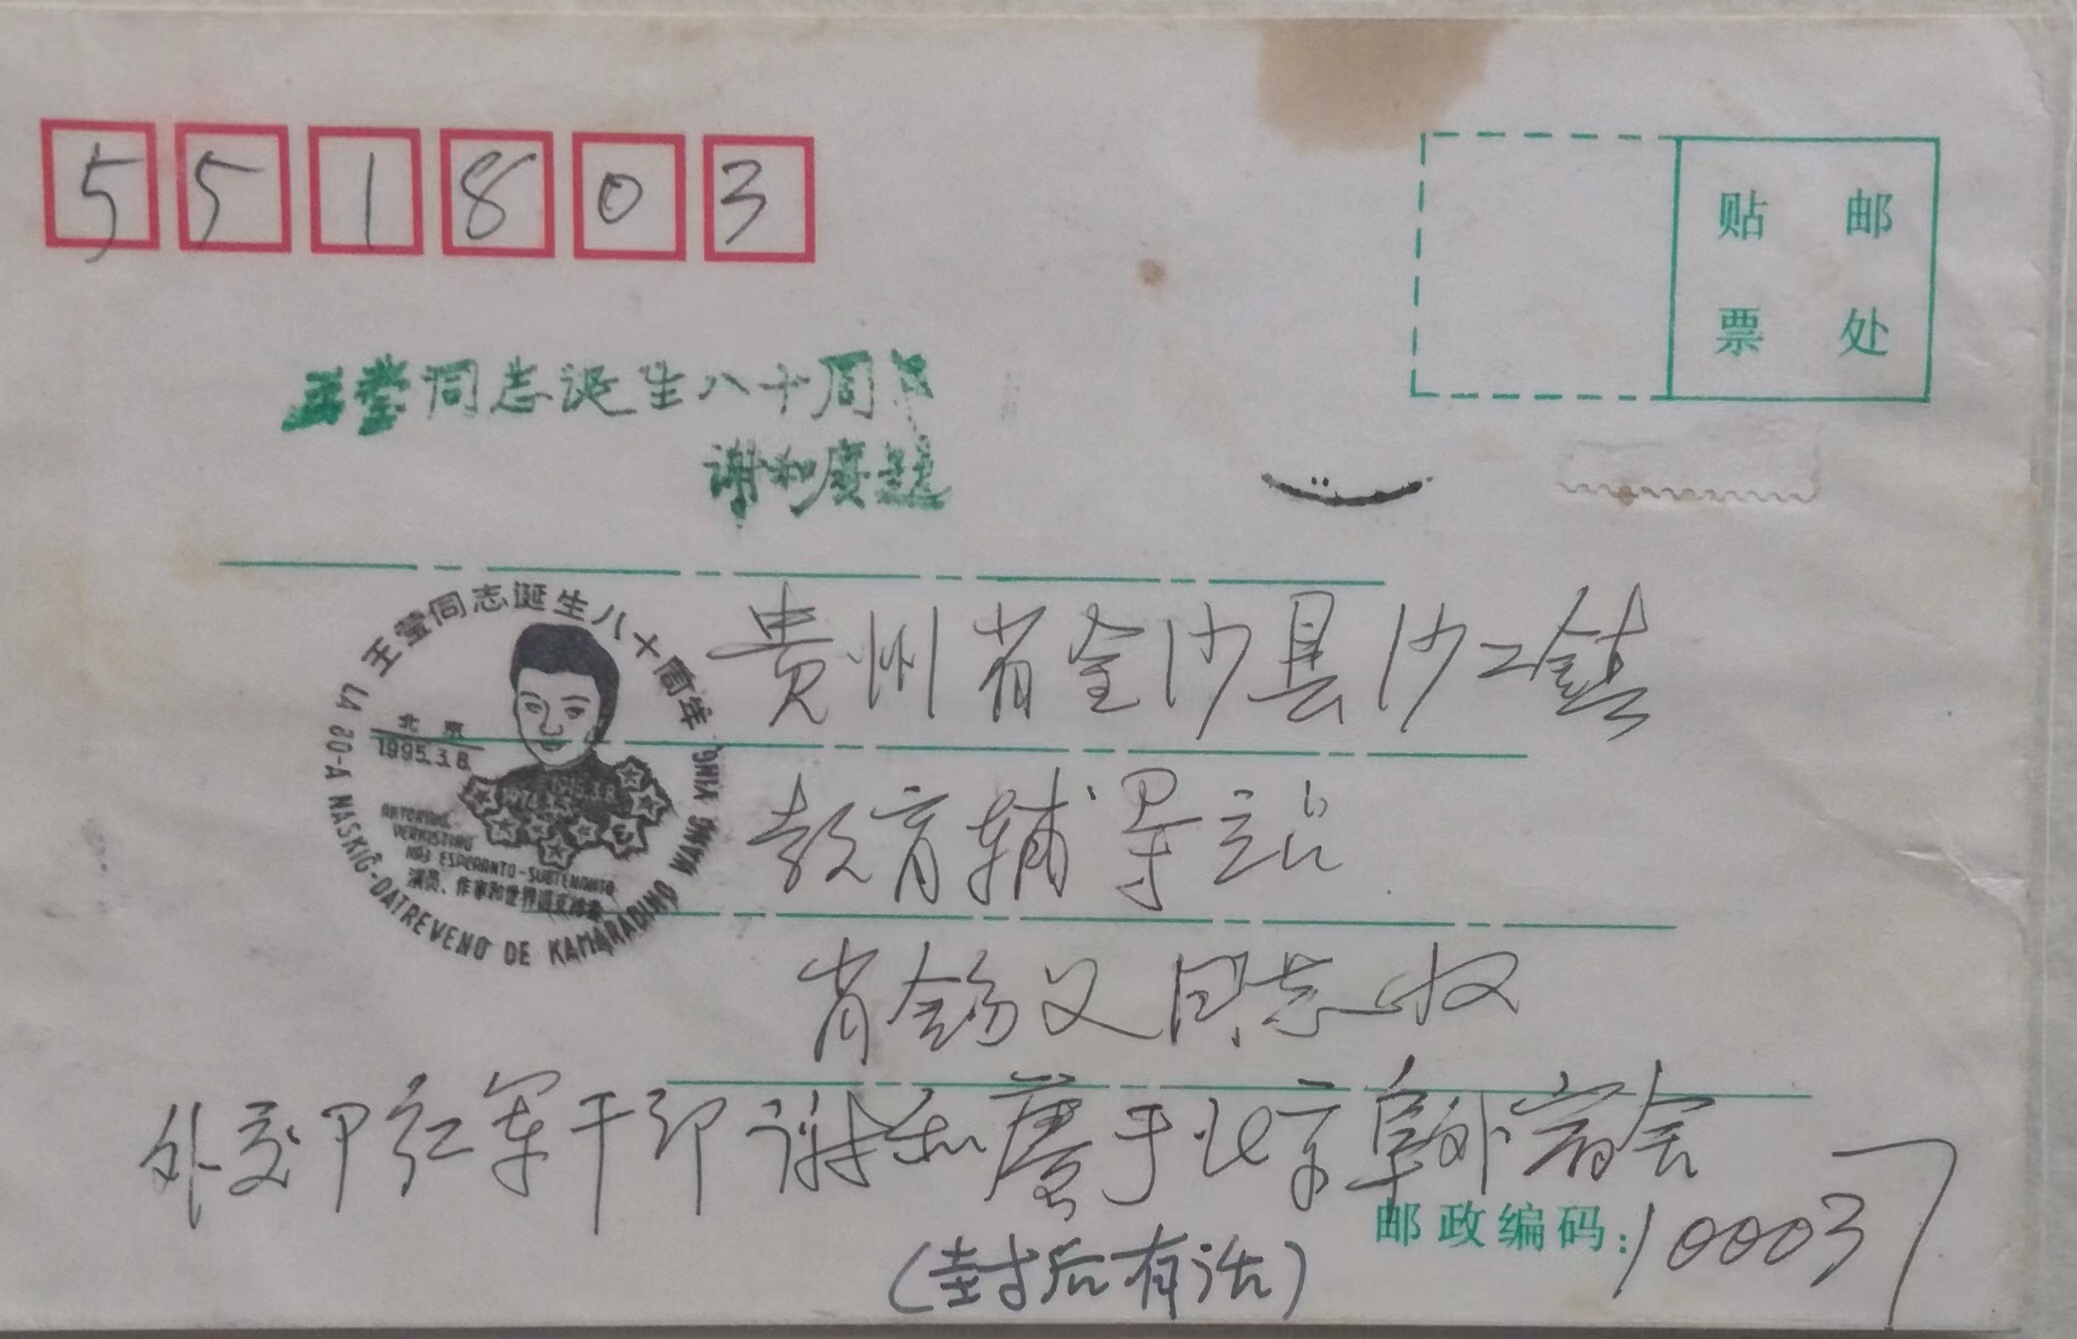 551803
贴邮
票处
王莹同志诞生八十周年
谢和赓题
王莹同志诞生八十周年
北京
1995.3.8
1915.3.8
1974.3.3
AKTORINO,
VERKISTINO
KAJ ESPERANTO-SUBTENANTO
演员、作家和世界语支持者
LA 80-A NASKIĜ-DATREVENO DE KAMARADINO WANG YING
贵州省金沙县沙土镇
教育辅导站
肖锡义同志收
外交部红军干部谢和赓于北京阜外宿舍
邮政编码:100037
(封后有话)